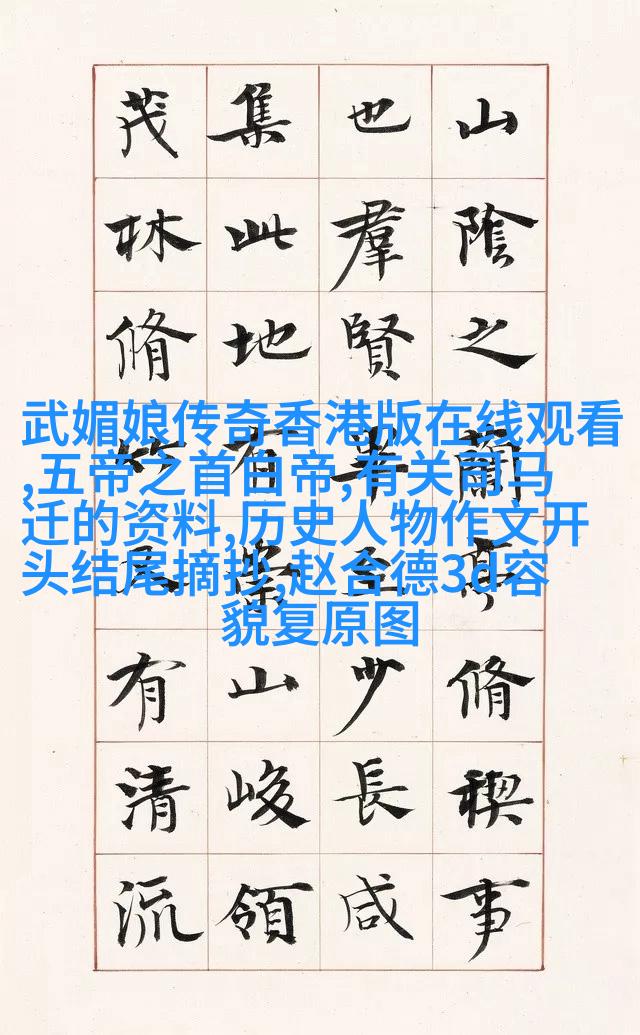 山陰之蘭亭脩稧事
也羣賢畢至少長咸
集此地有崇山峻領
茂林脩竹又有清流
武媚娘传奇香港版在线观看
,五帝之首白帝,有关司马
迁的资料,历史人物作文开
头结尾摘抄,赵合德3d容
貌复原图